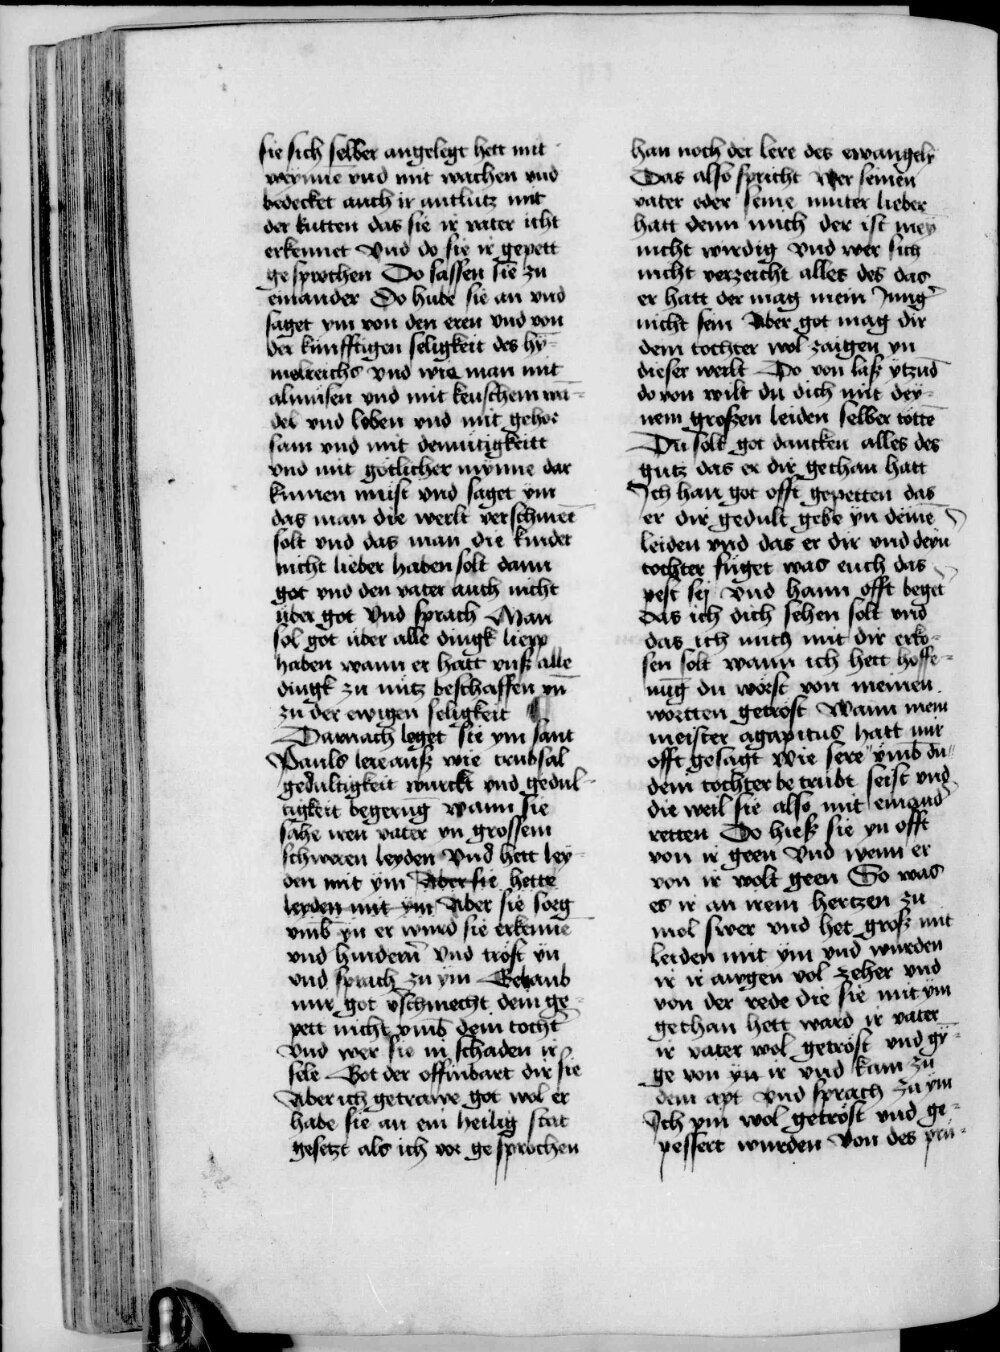 sie sich selber angelegt hett mit
weynne vnd mit wachen vnd
bedecket auch ir antlutz mit
der kutten das sie ir vater icht
erkennet Vnd do sie ir gepett
gesprochen Do sassen sie zu
einander Do hube sie an vnd
saget ym von den eren vnd von
der kunfftigen seligkeit des hy-
melreichs vnd wie man mit
almusen vnd mit keuschem wā-
del vnd loben vnd mit gehor
sam vnd mit demutigkeitt
vnd mit gotlicher mynne dar
kumen must vnd saget ym
das man die werlt verschmet
solt vnd das man die kinder
nicht lieber haben solt dann
got vnd den vater auch nicht
über got Vnd sprach Man
sol got über alle dingk liepp
haben wann er hatt vnß alle
dingk zu nutz beschaffen vn̄
zu der ewigen seligkeit
Darnach leget sie ym sant
Pauls lere auß wie trubsal
gedultigkeit wurckt vnd gedul-
tigkeit begerūg Wann sie
sahe iren vater yn grossem
schweren leyden Vnd hett ley
den mit ym Aber sie hette
leyden mit ym Aber sie sorg
vmb yn er wurd sie erkenne
vnd hindern Vnd trost yn
vnd sprach zu ym Gelaub
mir got vschmecht dein ge-
pett nicht vmb dein tocht'
Vnd wer sie in schaden ir
sele Got der offinbart dir sie
Aber ich getrawe got wol er
habe sie an ein heilig stat
gesetzt als ich vor gesprochen
han noch der lere des ewangely
Das also spricht Wer seinen
vater oder seine muter lieber
hatt denn mich der ist mey
nicht wirdig Vnd wer sich
nicht verzeicht alles des das
er hatt der mag mein Jung'
nicht sein Aber got mag dir
dein tochter wol zaigen yn
dieser werlt Do von laß ytzund
do von wilt du dich mit dey-
nem großen leiden selber totte
Du solt got dancken alles des
gutz das er dir gethan hatt
Ich han got offt gepetten das
er dir gedult gebe yn deinē
leiden vnd das er dir vnd deyn
tochter füget was euch das
pest sey Vnd hann offt beget
Das ich dich sehen solt vnd
das ich mich mit dir erko-
sen solt wann ich hett hoffe-
nūg du worst von meinen
wortten getröst Wann mein
meister agapitus hatt mir
offt gesagt Wie sere ymb du
dein tochter betrubt seist vnd
die weil sie also mit einand'
retten Do hieß sie yn offt
von ir geen Vnd wenn er
von ir wolt geen So was
es ir an irem hertzen zu
mol swer vnd het groß mit
leiden mit ym vnd wurden
ir ir awgen vol zeher vnd
von der rede die sie mit ym
gethan hett ward ir vater
ir vater wol getröst vnd gy-
ge von yn ir vnd kam zu
dem apt Vnd sprach zu ym
Ich pin wol getröst vnd ge-
pessert wurden Von des pru-